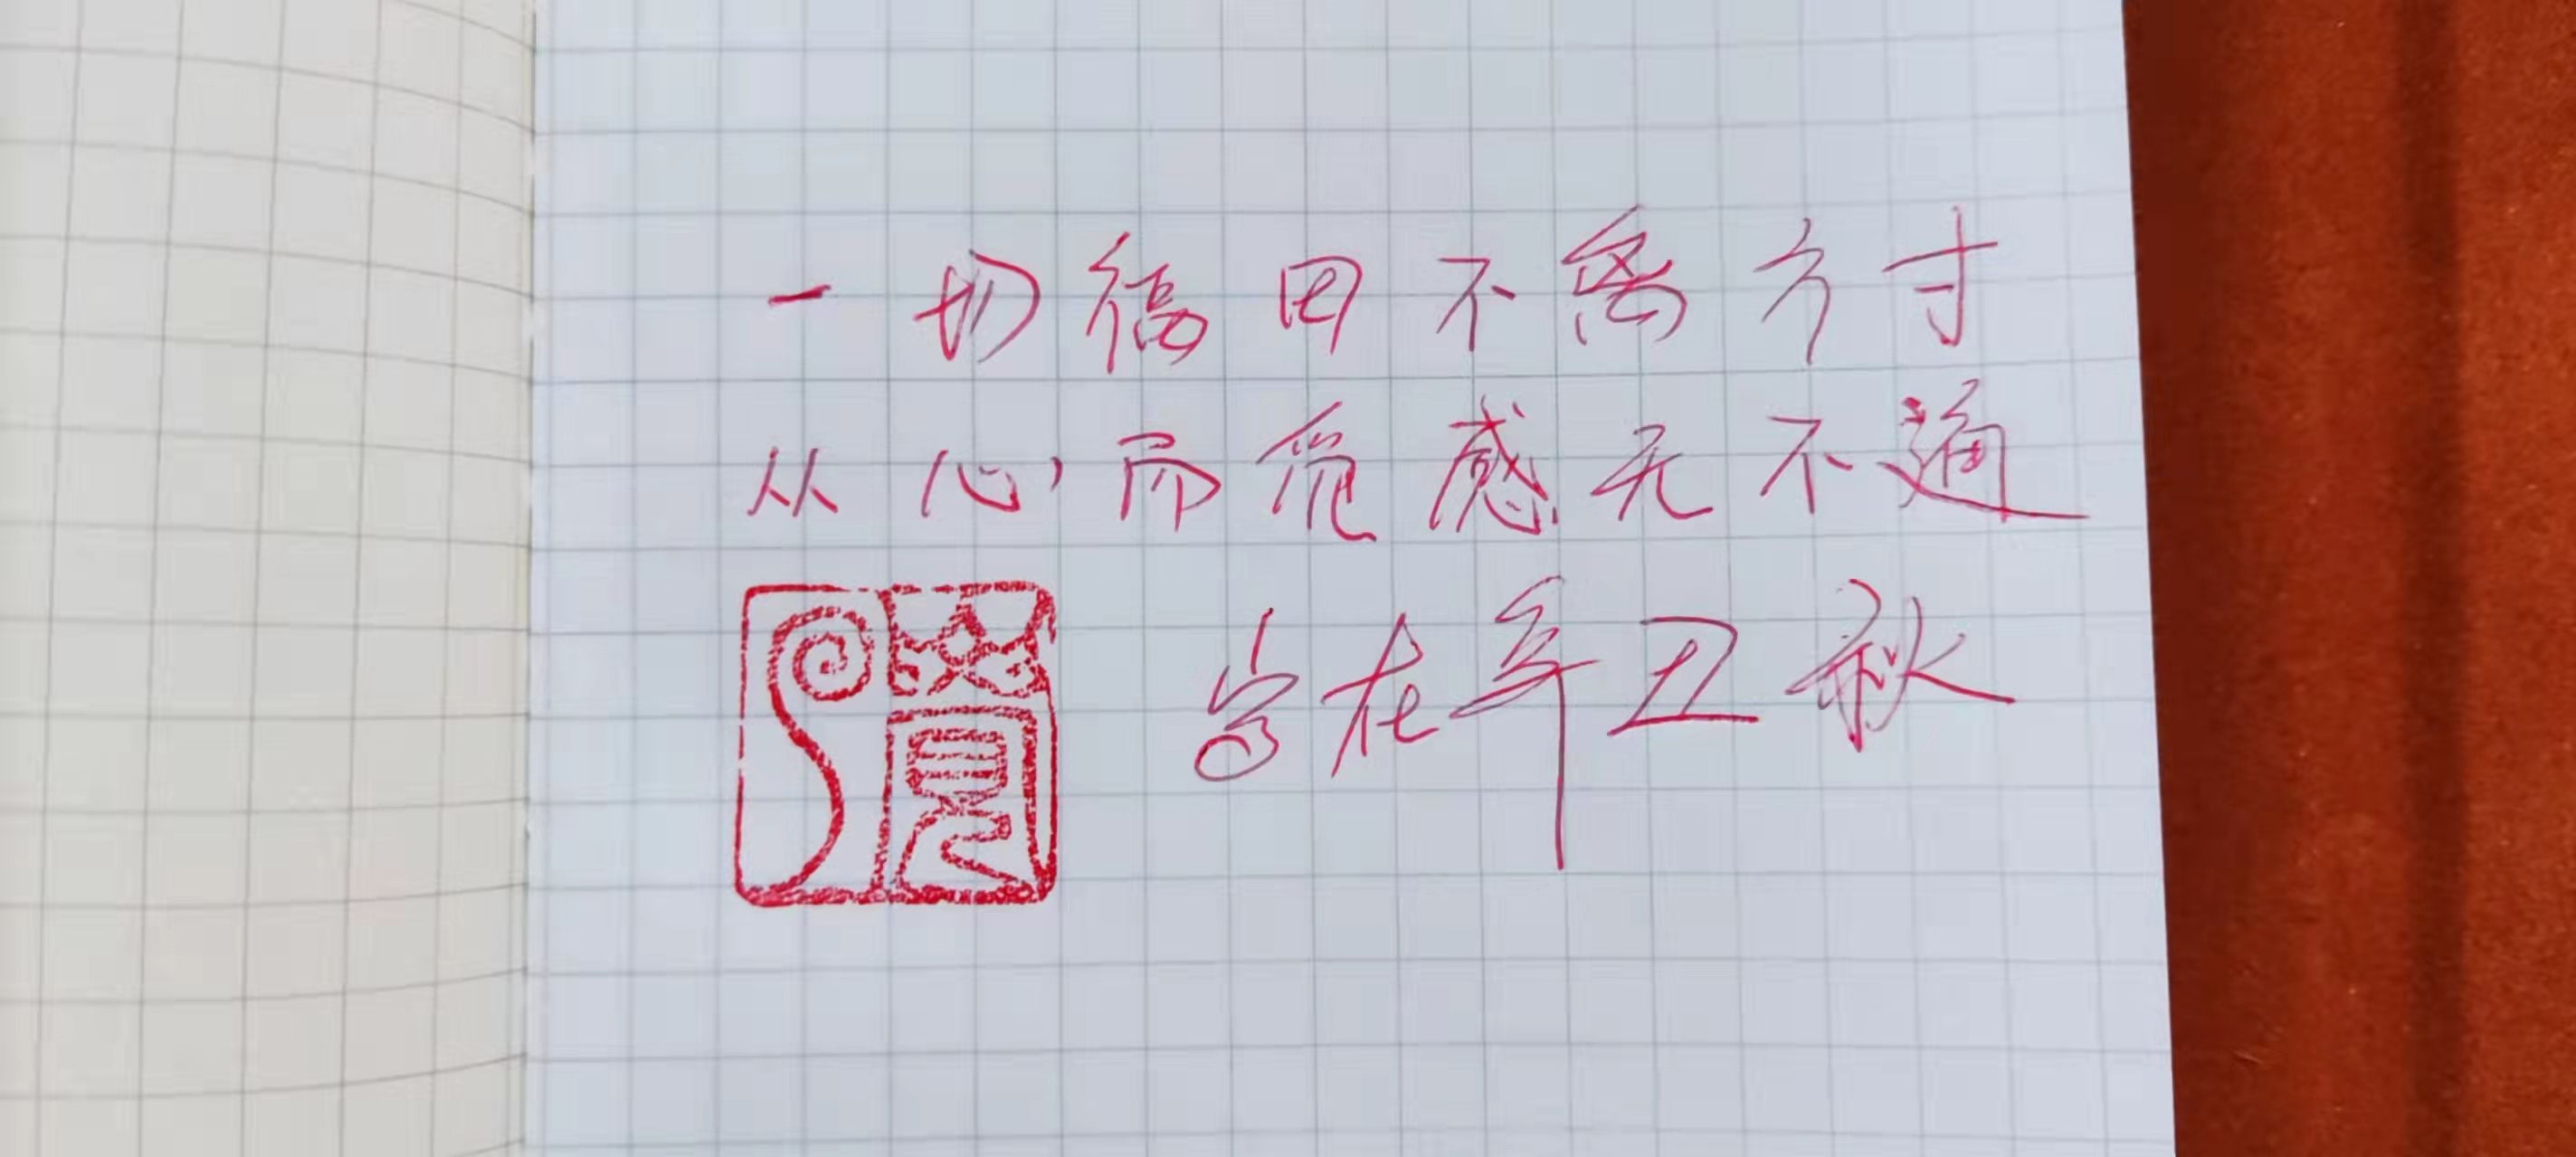 一切福田不离方寸
从心而觅感无不通
在辛丑秋